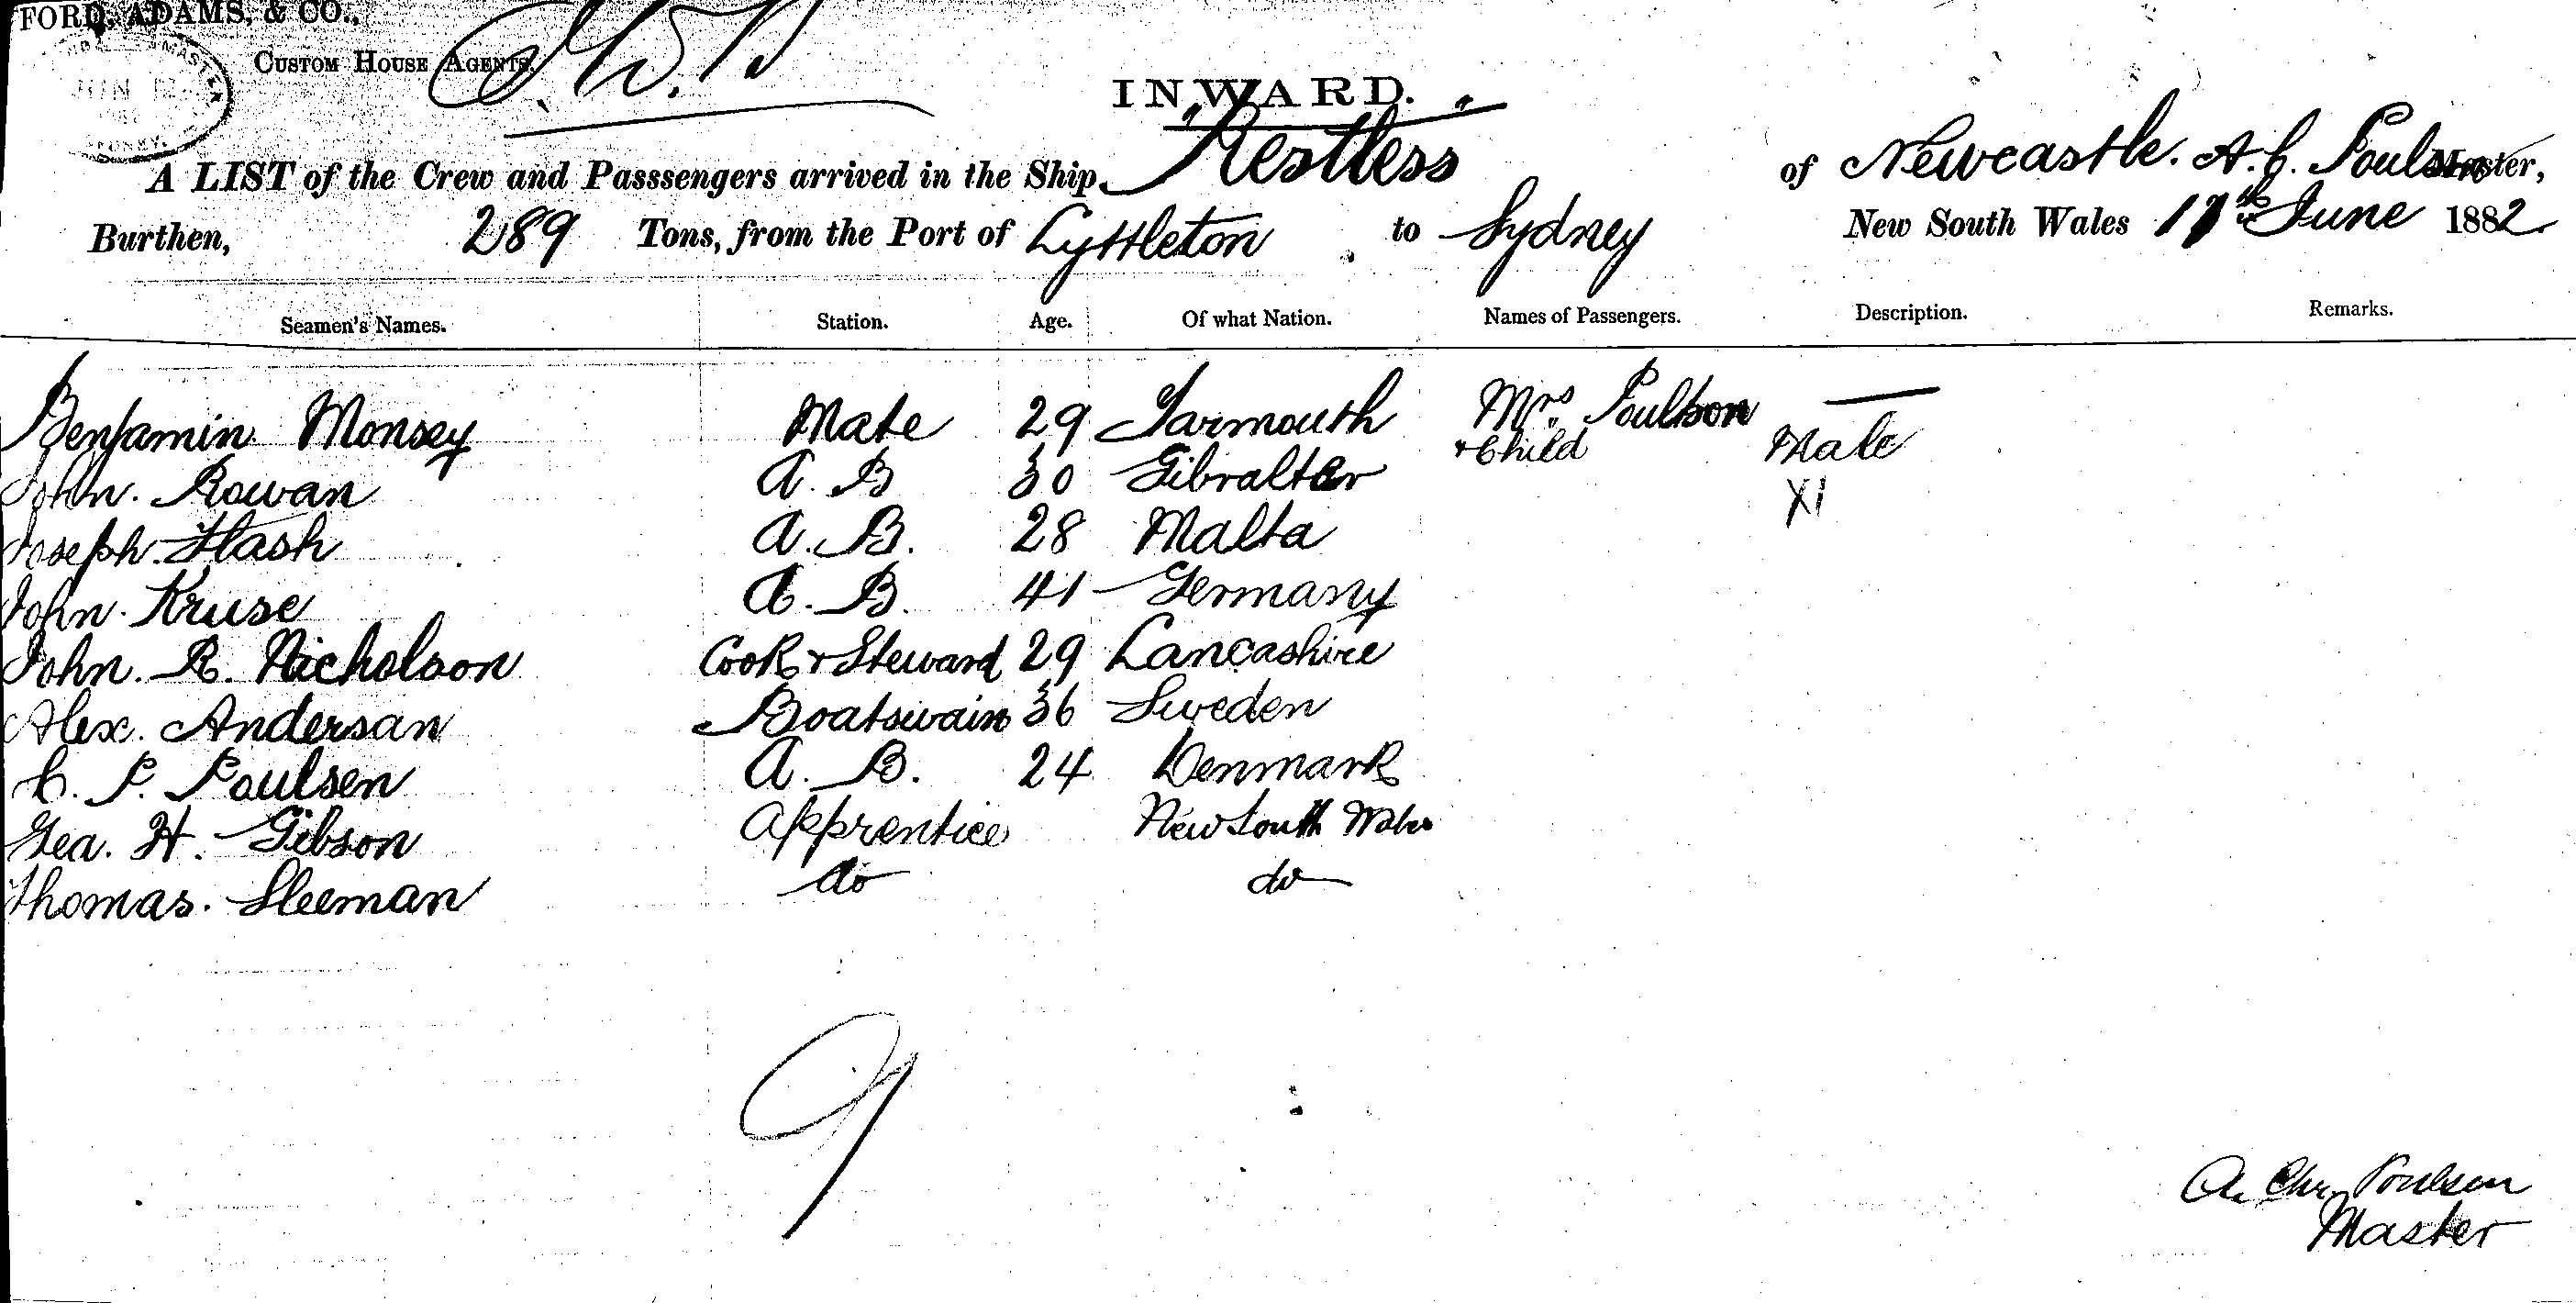 FORD, ADAMS, & CO.,
CUSTOM HOUSE AGENTS.
JUN 12
SYDNEY.
INWARD.
A LIST of the Crew and Passsengers arrived in the Ship "Restless" of Newcastle. A. C. Poulson Master,
Burthen, 289 Tons, from the Port of Lyttleton to Sydney New South Wales th June 1882.
Seamen's Names. Station. Age. Of what Nation. Names of Passengers. Description. Remarks.
Benjamin Monsey Mate 29 Yarmouth Mrs Poulson —
John. Rowan A. B 30 Gibralter + Child Male
Joseph. Flash A. B. 28 Malta X1
John. Kruse A. B. 41 Germany
John. R. Nicholson Cook + Steward 29 Lancashire
Alex. Andersan Boatswain 36 Sweden
C. P. Poulsen A. B. 24 Denmark
Geo. H. Gibson Apprentice New South Wales
Thomas. Sleeman do do
9
A. Chr. Poulsen
Master